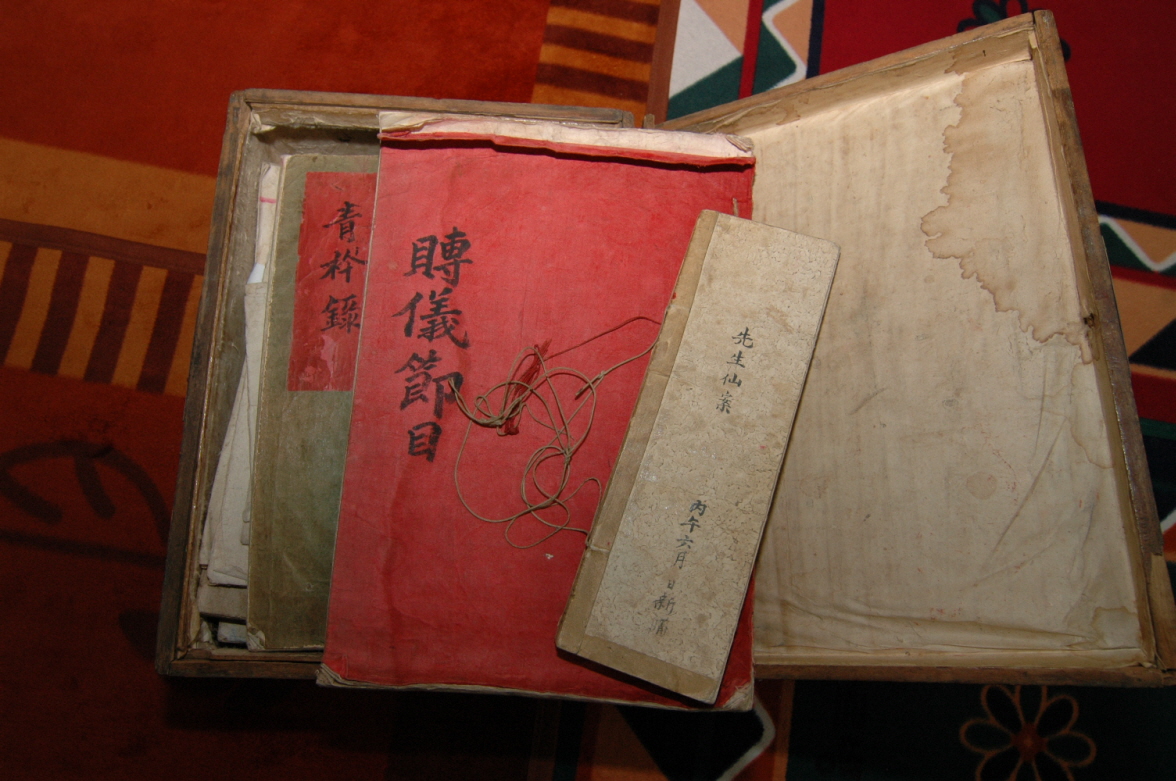 青衿錄
賻儀節目
先生仙案
丙午六月 日新